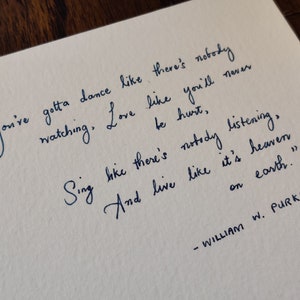 you've gotta dance like there's nobody
watching, Love like you'll never
be hurt,
Sing like there's nobody listening,
And live like it's heaven
on earth."
- WILLIAM W. PURK